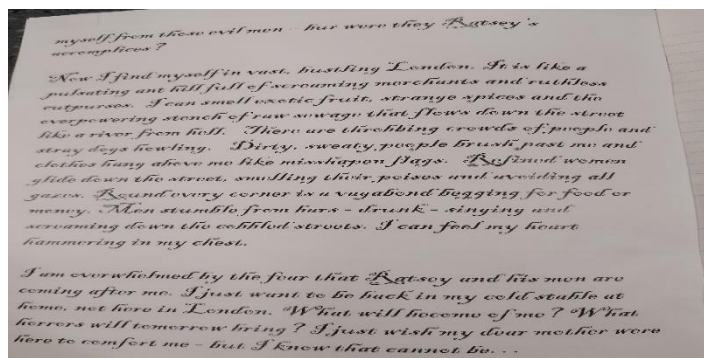 myself from those evil men - but were they Ratsey's
accomplices?
Now I find myself in vast, bustling London. It is like a
pulsating ant hill full of screaming merchants and ruthless
cutpurses. I can smell exotic fruit, strange spices and the
overpowering stench of raw sewage that flows down the street
like a river from hell. There are throbbing crowds of people and
stray dogs howling. Dirty, sweaty people brush past me and
clothes hang above me like misshapen flags. Refined women
glide down the street, smelling their poises and avoiding all
gazes. Round every corner is a vagabond begging for food or
money. Men stumble from bars - drunk - singing and
screaming down the cobbled streets. I can feel my heart
hammering in my chest.
I am overwhelmed by the fear that Ratsey and his men are
coming after me. I just want to be back in my cold stable at
home, not here in London. What will become of me? What
horrors will tomorrow bring? I just wish my dear mother were
here to comfort me - but I know that cannot be...